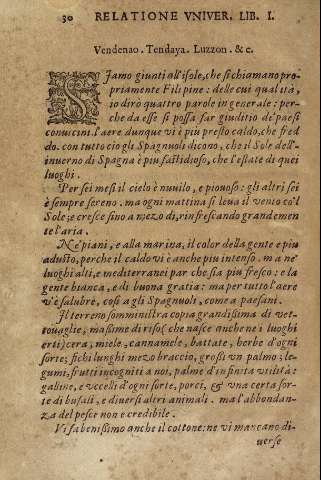 30 RELATIONE VNIVER. LIB. I.
Vendenao. Tendaya. Luzzon. & c.
SJamo giunti all'isole, che si chiamano pro-
priamente Filipine: delle cui qualità,
io dirò quattro parole in generale: per-
che da esse si possa far giuditio de' paesi
conuicini. l'aere dunque vi è più presto caldo, che fred
do. con tutto ciò gli Spagnuoli dicono, che il Sole dell'
inuerno di Spagna è più fastidioso, che l'estate di quei
luoghi.
Per sei mesi il cielo è nuuilo, e piouoso: gli altri sei
è sempre sereno. ma ogni mattina si leua il vento co'l
Sole; e cresce sino a mezo dì, rinfrescando grandemen
te l'aria.
Ne' piani, e alla marina, il color della gente e piu
adusto, perche il caldo vi è anche piu intenso. ma ne'
luoghi alti, e mediterranei par che sia piu fresco: e la
gente bianca, e di buona gratia: ma per tutto l'aere
v'è salubre, così a gli Spagnuoli, come a paesani.
Il terreno somministra copia grandissima di vet-
touaglie, massime di riso (che nasce anche ne i luoghi
erti) cera, miele, cannamele, battate, herbe d'ogni
sorte; fichi lunghi mezo braccio, grossi un palmo; le-
gumi, frutti incogniti a noi, palme d'infinita vtilità:
galine, e vccelli d'ogni sorte, porci, & vna certa sor-
te di bufali, e diuersi altri animali. ma l'abbondan-
za del pesce non e credibile.
Vi fa benissimo anche il cottone: ne vi mancano di-
uerse